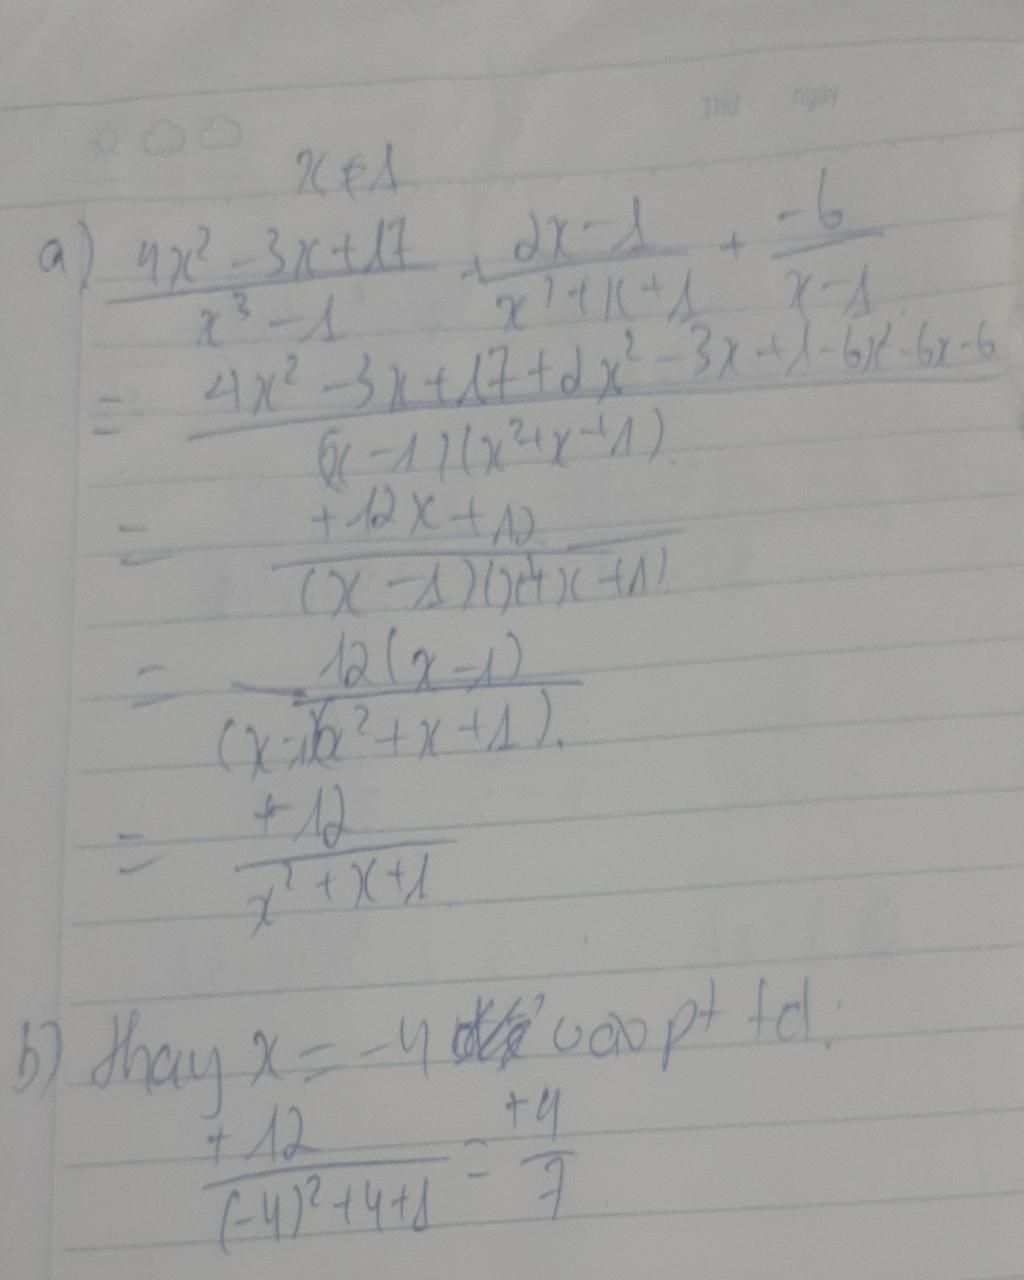 Thứ ngày
x ≠ 1
a) \frac{4x² - 3x + 17}{x³ - 1} + \frac{2x - 1}{x² + x + 1} + \frac{-6}{x - 1}
= \frac{4x² - 3x + 17 + 2x² - 3x + 1 - 6x² - 6x - 6}{(x - 1)(x² + x + 1)}
= \frac{+12x + 12}{(x - 1)(x² + x + 1)}
= \frac{12(x - 1)}{(x - 1)(x² + x + 1)}.
= \frac{+12}{x² + x + 1}
b) thay x = -4 vào pt td:
\frac{+12}{(-4)² + 4 + 1} = \frac{+4}{7}